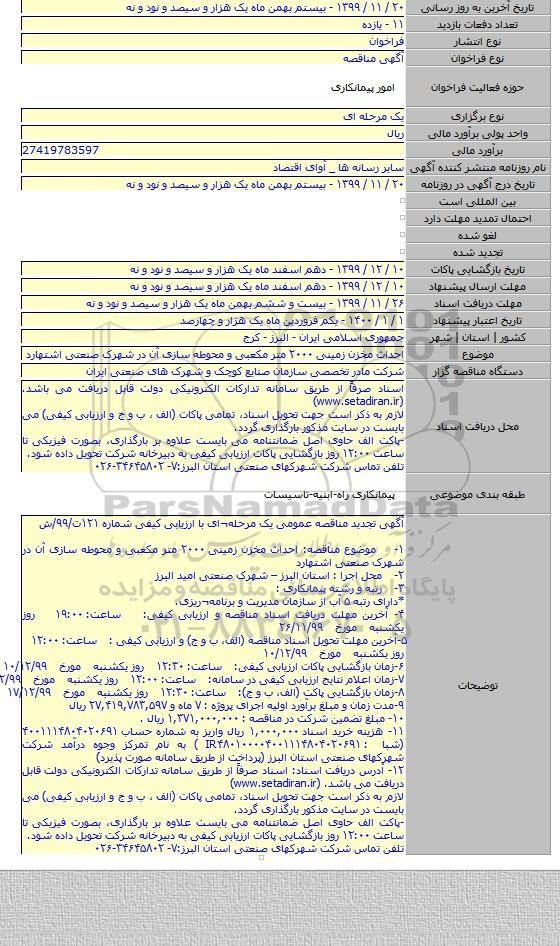 تاریخ آخرین به روز رسانی
۲۰ / ۱۱ / ۱۳۹۹ - بیستم بهمن ماه یک هزار و سیصد و نود و نه
تعداد دفعات بازدید
۱۱ - یازده
نوع انتشار
فراخوان
نوع فراخوان
آگهی مناقصه
حوزه فعالیت فراخوان
امور پیمانکاری
نوع برگزاری
یک مرحله ای
واحد پولی برآورد مالی
ریال
برآورد مالی
27419783597
نام روزنامه منتشر کننده آگهی
سایر رسانه ها _ آوای اقتصاد
تاریخ درج آگهی در روزنامه
۲۰ / ۱۱ / ۱۳۹۹ - بیستم بهمن ماه یک هزار و سیصد و نود و نه
بین المللی است
احتمال تمدید مهلت دارد
لغو شده
تجدید شده
تاریخ بازگشایی پاکات
۱۰ / ۱۲ / ۱۳۹۹ - دهم اسفند ماه یک هزار و سیصد و نود و نه
مهلت ارسال پیشنهاد
۱۰ / ۱۲ / ۱۳۹۹ - دهم اسفند ماه یک هزار و سیصد و نود و نه
مهلت دریافت اسناد
۲۶ / ۱۱ / ۱۳۹۹ - بیست و ششم بهمن ماه یک هزار و سیصد و نود و نه
تاریخ اعتبار پیشنهاد
۱ / ۱ / ۱۴۰۰ - یکم فروردین ماه یک هزار و چهارصد
کشور | استان | شهر
جمهوری اسلامی ایران - البرز - کرج
موضوع
احداث مخزن زمینی ۲۰۰۰ متر مکعبی و محوطه سازی آن در شهرک صنعتی اشتهارد
دستگاه مناقصه گزار
شرکت مادر تخصصی سازمان صنایع کوچک و شهرک های صنعتی ایران
محل دریافت اسناد
اسناد صرفاً از طریق سامانه تدارکات الکترونیکی دولت قابل دریافت می باشد.
(www.setadiran.ir)
لازم به ذکر است جهت تحویل اسناد، تمامی پاکات (الف ، ب و ج و ارزیابی کیفی) می
بایست در سایت مذکور بارگذاری گردد.
-پاکت الف حاوی اصل ضمانتنامه می بایست علاوه بر بارگذاری، بصورت فیزیکی تا
ساعت ۱۲:۰۰ روز بازگشایی پاکات ارزیابی کیفی به دبیرخانه شرکت تحویل داده شود.
تلفن تماس شرکت شهرکهای صنعتی استان البرز:۷- ۳۴۶۴۵۸۰۲-۰۲۶
طبقه بندی موضوعی
پیمانکاری راه-ابنیه-تاسیسات
ParsNamadData
توضیحات
آگهی تجدید مناقصه عمومی یک مرحله¬ای با ارزیابی کیفی شماره ۱۲۱ت/۹۹/ش
۱- موضوع مناقصه: احداث مخزن زمینی ۲۰۰۰ متر مکعبی و محوطه سازی آن در
شهرک صنعتی اشتهارد
۲- محل اجرا : استان البرز – شهرک صنعتی امید البرز
۳- رتبه و رشته پیمانکاری :
*دارای رتبه ۵ آب از سازمان مدیریت و برنامه¬ریزی.
۴- آخرین مهلت دریافت اسناد مناقصه و ارزیابی کیفی: ساعت: ۱۹:۰۰ روز
یکشنبه مورخ ۲۶/۱۱/۹۹
۵-آخرین مهلت تحویل اسناد مناقصه (الف، ب و ج) و ارزیابی کیفی : ساعت: ۱۲:۰۰
روز یکشنبه مورخ ۱۰/۱۲/۹۹
۶-زمان بازگشایی پاکات ارزیابی کیفی: ساعت: ۱۲:۳۰ روز یکشنبه مورخ ۱۰/۱۲/۹۹
۷-زمان اعلام نتایج ارزیابی کیفی در سامانه: ساعت: ۱۲:۰۰ روز یکشنبه مورخ
۸-زمان بازگشایی پاکت (الف، ب و ج): ساعت: ۱۲:۳۰ روز یکشنبه مورخ ۱۷/۱۲/۹۹
۹-مدت زمان و مبلغ برآورد اولیه اجرای پروژه : ۷ ماه و ۲۷,۴۱۹,۷۸۳,۵۹۷ ریال
۱۰- مبلغ تضمین شرکت در مناقصه : ۱,۳۷۱,۰۰۰,۰۰۰ ریال .
۱۱- هزینه خرید اسناد ۱,۰۰۰,۰۰۰ ریال واریز به شماره حساب ۴۰۰۱۱۱۴۸۰۴۰۲۰۶۹۱
(شبا : IR۴۸۰۱۰۰۰۰۴۰۰۱۱۱۴۸۰۴۰۲۰۶۹۱ ) به نام تمرکز وجوه درآمد شرکت
شهرکهای صنعتی استان البرز (پرداخت از طریق سامانه صورت پذیرد)
۱۲- آدرس دریافت اسناد: اسناد صرفاً از طریق سامانه تدارکات الکترونیکی دولت قابل
دریافت می باشد. (www.setadiran.ir)
لازم به ذکر است جهت تحویل اسناد، تمامی پاکات (الف ، ب و ج و ارزیابی کیفی) می
بایست در سایت مذکور بارگذاری گردد.
-پاکت الف حاوی اصل ضمانتنامه می بایست علاوه بر بارگذاری، بصورت فیزیکی تا
ساعت ۱۲:۰۰ روز بازگشایی پاکات ارزیابی کیفی به دبیرخانه شرکت تحویل داده شود.
تلفن تماس شرکت شهرکهای صنعتی استان البرز:۷- ۳۴۶۴۵۸۰۲-۰۲۶